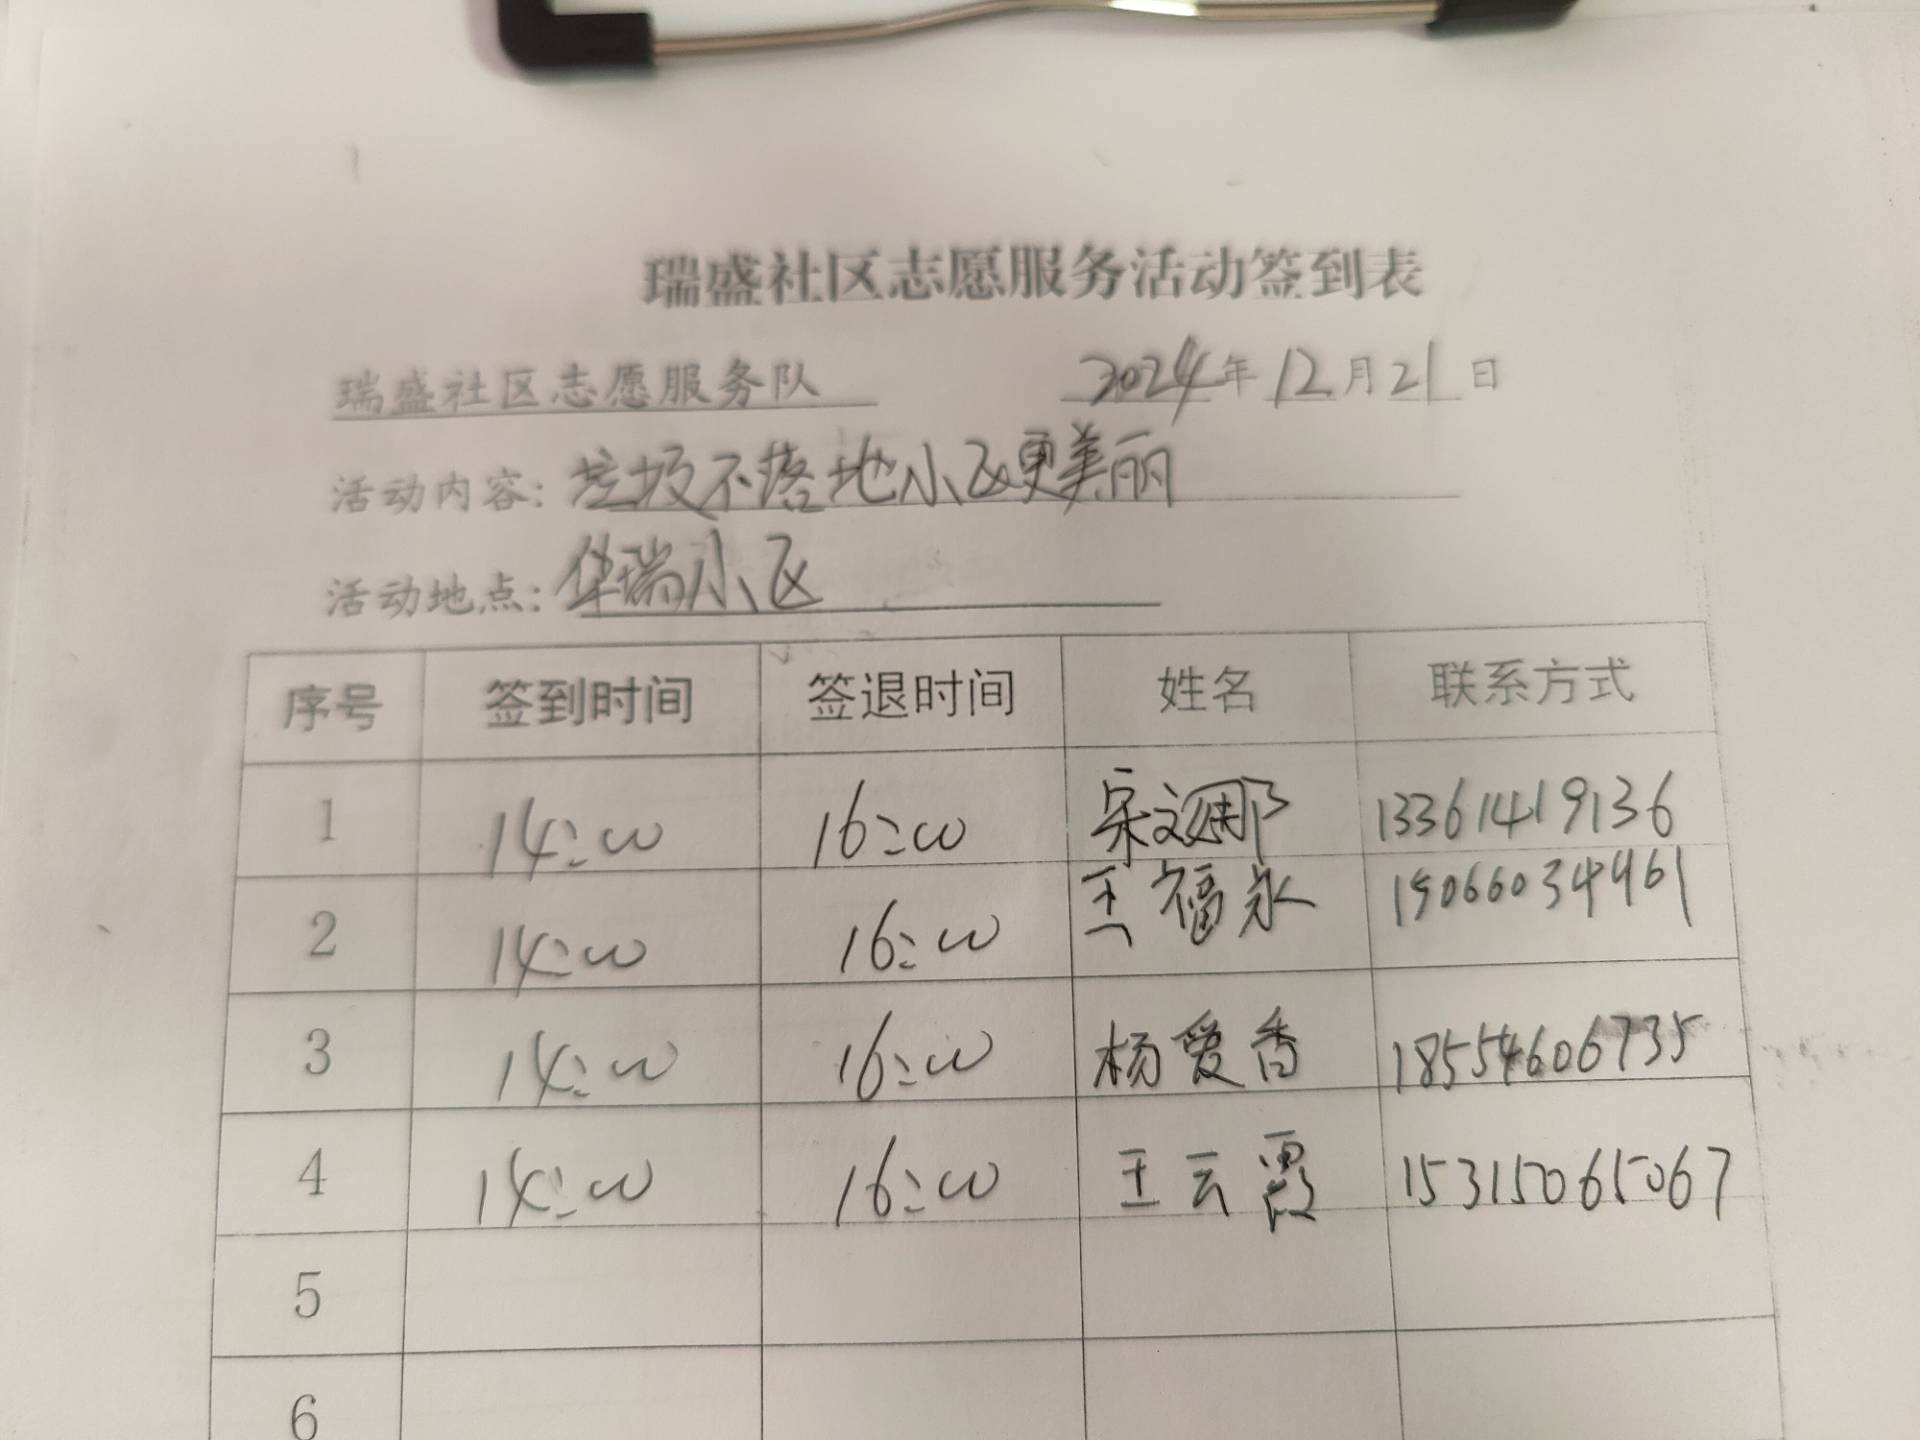 瑞盛社区志愿服务活动签到表
瑞盛社区志愿服务队 2024年12月21日
活动内容：垃圾不落地小区更美丽
活动地点：华瑞小区
序号 签到时间 签退时间 姓名 联系方式
1 14:00 16:00 宋文娜 13361419136
2 14:00 16:00 王福永 19066034461
3 14:00 16:00 杨爱香 18554606735
4 14:00 16:00 王云霞 15315065067
5
6